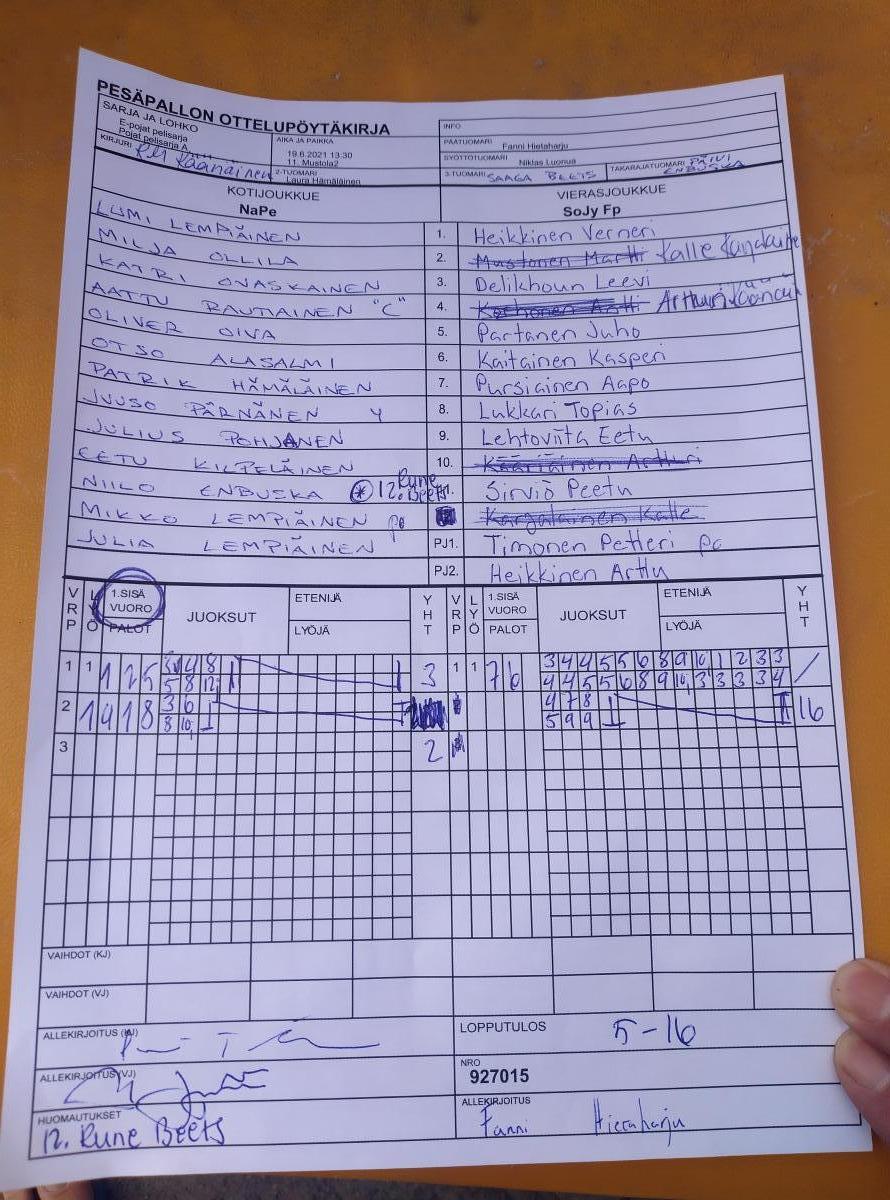 PESÄPALLON OTTELUPÖYTÄKIRJA
SARJA JA LOHKO
E-pojat pelisarja
Pojat pelisarja A
AIKA JA PAIKKA
19.6.2021 13:30
11. Mustola2
INFO
PÄÄTUOMARI Fanni Hietaharju
SYÖTTÖTUOMARI Niklas Luonua
KIRJURI Kaanäinen
2-TUOMARI Laura Hämäläinen
3.TUOMARI SAAGA BEETS
TAKARAJATUOMARI PÄIVI ENBUSKA
KOTIJOUKKUE
NaPe
VIERASJOUKKUE
SoJy Fp
LUMI LEMPIÄINEN 1. Heikkinen Verneri
MILJA OLLILA 2. Mustonen Martti Kalle
KATRI OVASKAINEN 3. Delikhoun Leevi
AATTU RAUTIAINEN "C" 4. Arthuri
OLIVER OIVA 5. Partanen Juho
OTSO ALASALMI 6. Kaitainen Kasperi
PATRIK HÄMÄLÄINEN 7. Pursiainen Aapo
JUUSO PÄRNÄNEN Y 8. Lukkari Topias
JULIUS POHJANEN 9. Lehtoviita Eetu
EETU KILPELÄINEN 10. Kääriäinen Artturi
NIILO ENBUSKA * 12. Rune Beets 11. Sirviö Peetu
MIKKO LEMPIÄINEN pe Karjalainen Kalle
JULIA LEMPIÄINEN PJ1. Timonen Petteri pc
PJ2. Heikkinen Arttu
VRP LYÖ 1.SISÄ VUORO PALOT JUOKSUT ETENIJÄ LYÖJÄ YHT VRP LYÖ 1.SISÄ VUORO PALOT JUOKSUT ETENIJÄ LYÖJÄ YHT
1 1 1 2 5 3 4 8 3 1 1 7 6 3 4 4 5 5 6 8 9 10 1 2 3 3
5 8 12 4 4 5 5 6 8 9 10 3 3 3 3 4
2 1 9 1 8 3 6 4 7 8 16
8 10 5 9 9
3 2
VAIHDOT (KJ)
VAIHDOT (VJ)
ALLEKIRJOITUS (KJ)
LOPPUTULOS 5-16
ALLEKIRJOITUS (VJ)
NRO
927015
HUOMAUTUKSET
12. Rune Beets
ALLEKIRJOITUS
Fanni Hietaharju